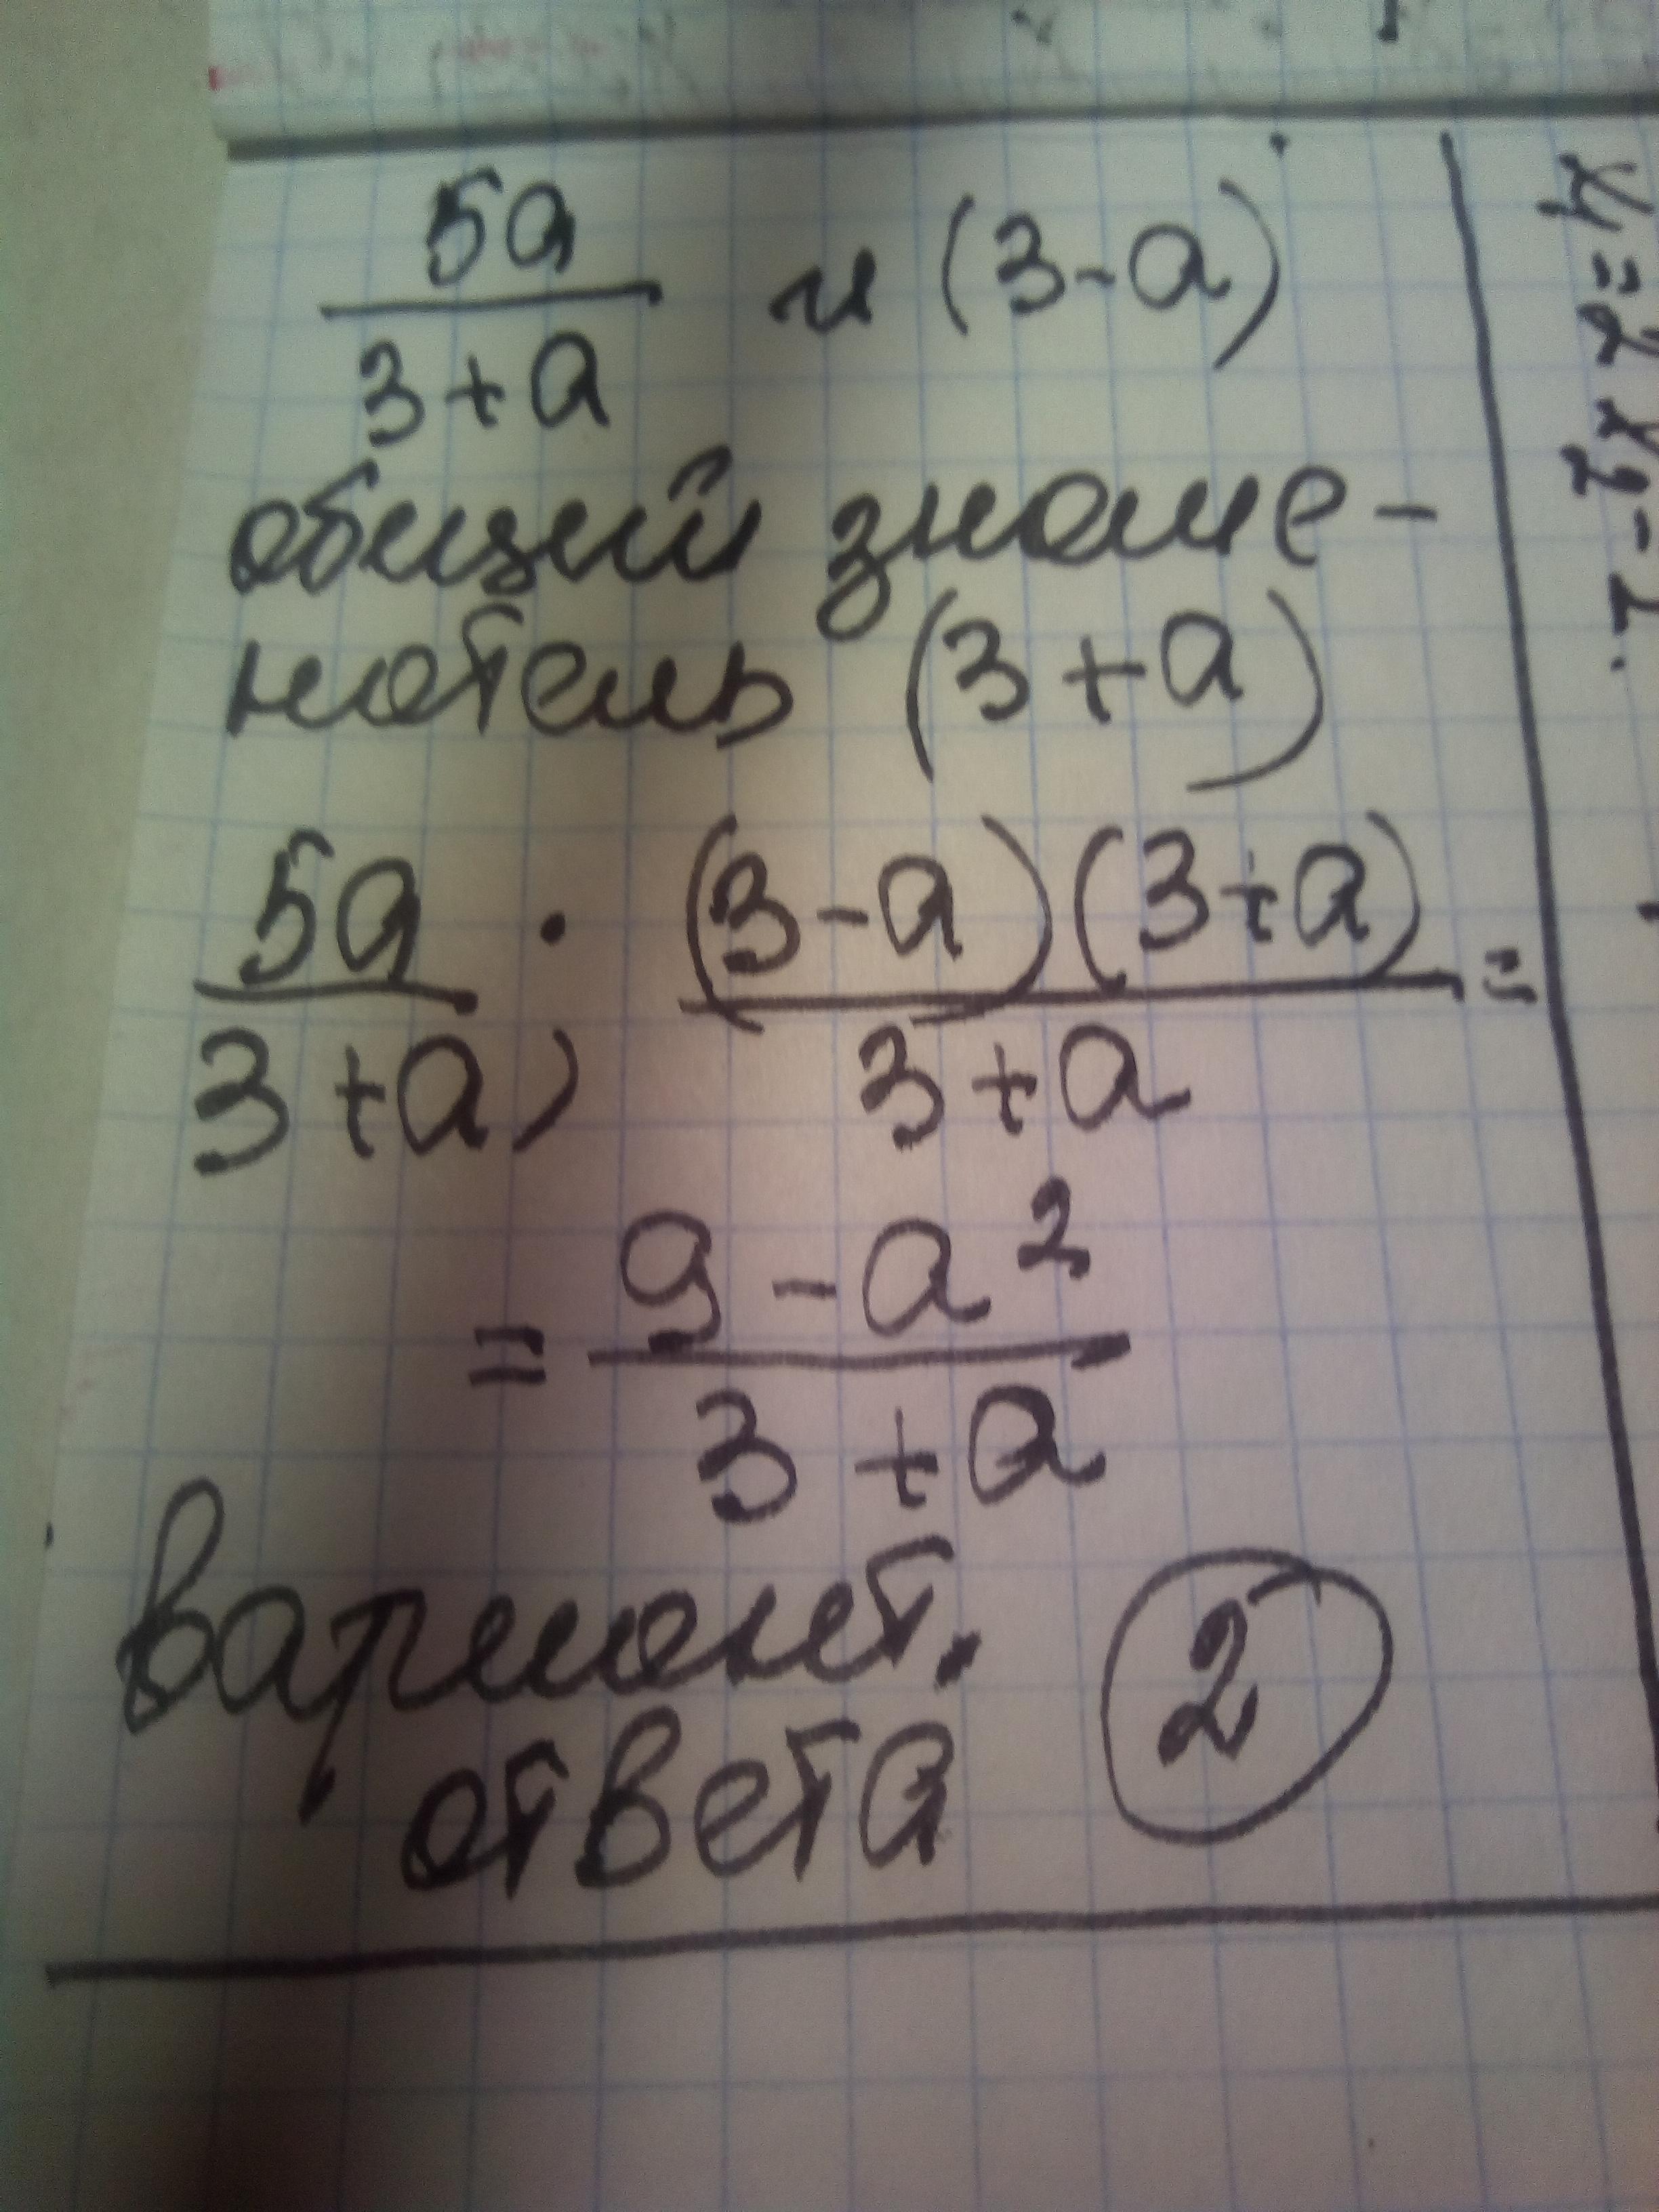 5a
3+a
и (3-a)
общий знаме-
натель (3+a)
5a ; (3-a)(3+a) =
3+a 3+a
= 9-a²
3+a
вариант.
ответа 2
x₁=2 x₂-2.